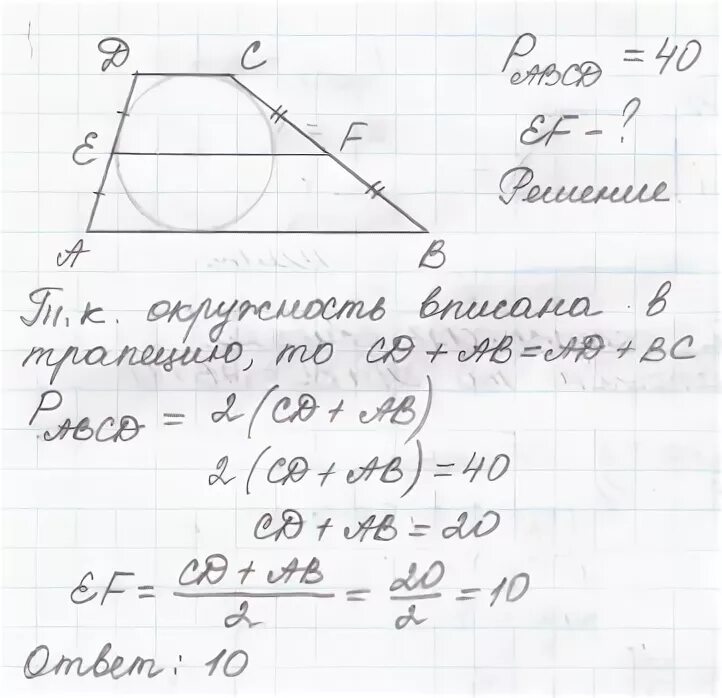 D C
E F
A B
P_ABCD = 40
EF - ?
Решение
Т.к. окружность вписана в
трапецию, то CD + AB = AD + BC
P_ABCD = 2 (CD + AB)
2 (CD + AB) = 40
CD + AB = 20
EF = (CD + AB)/2 = 20/2 = 10
Ответ: 10